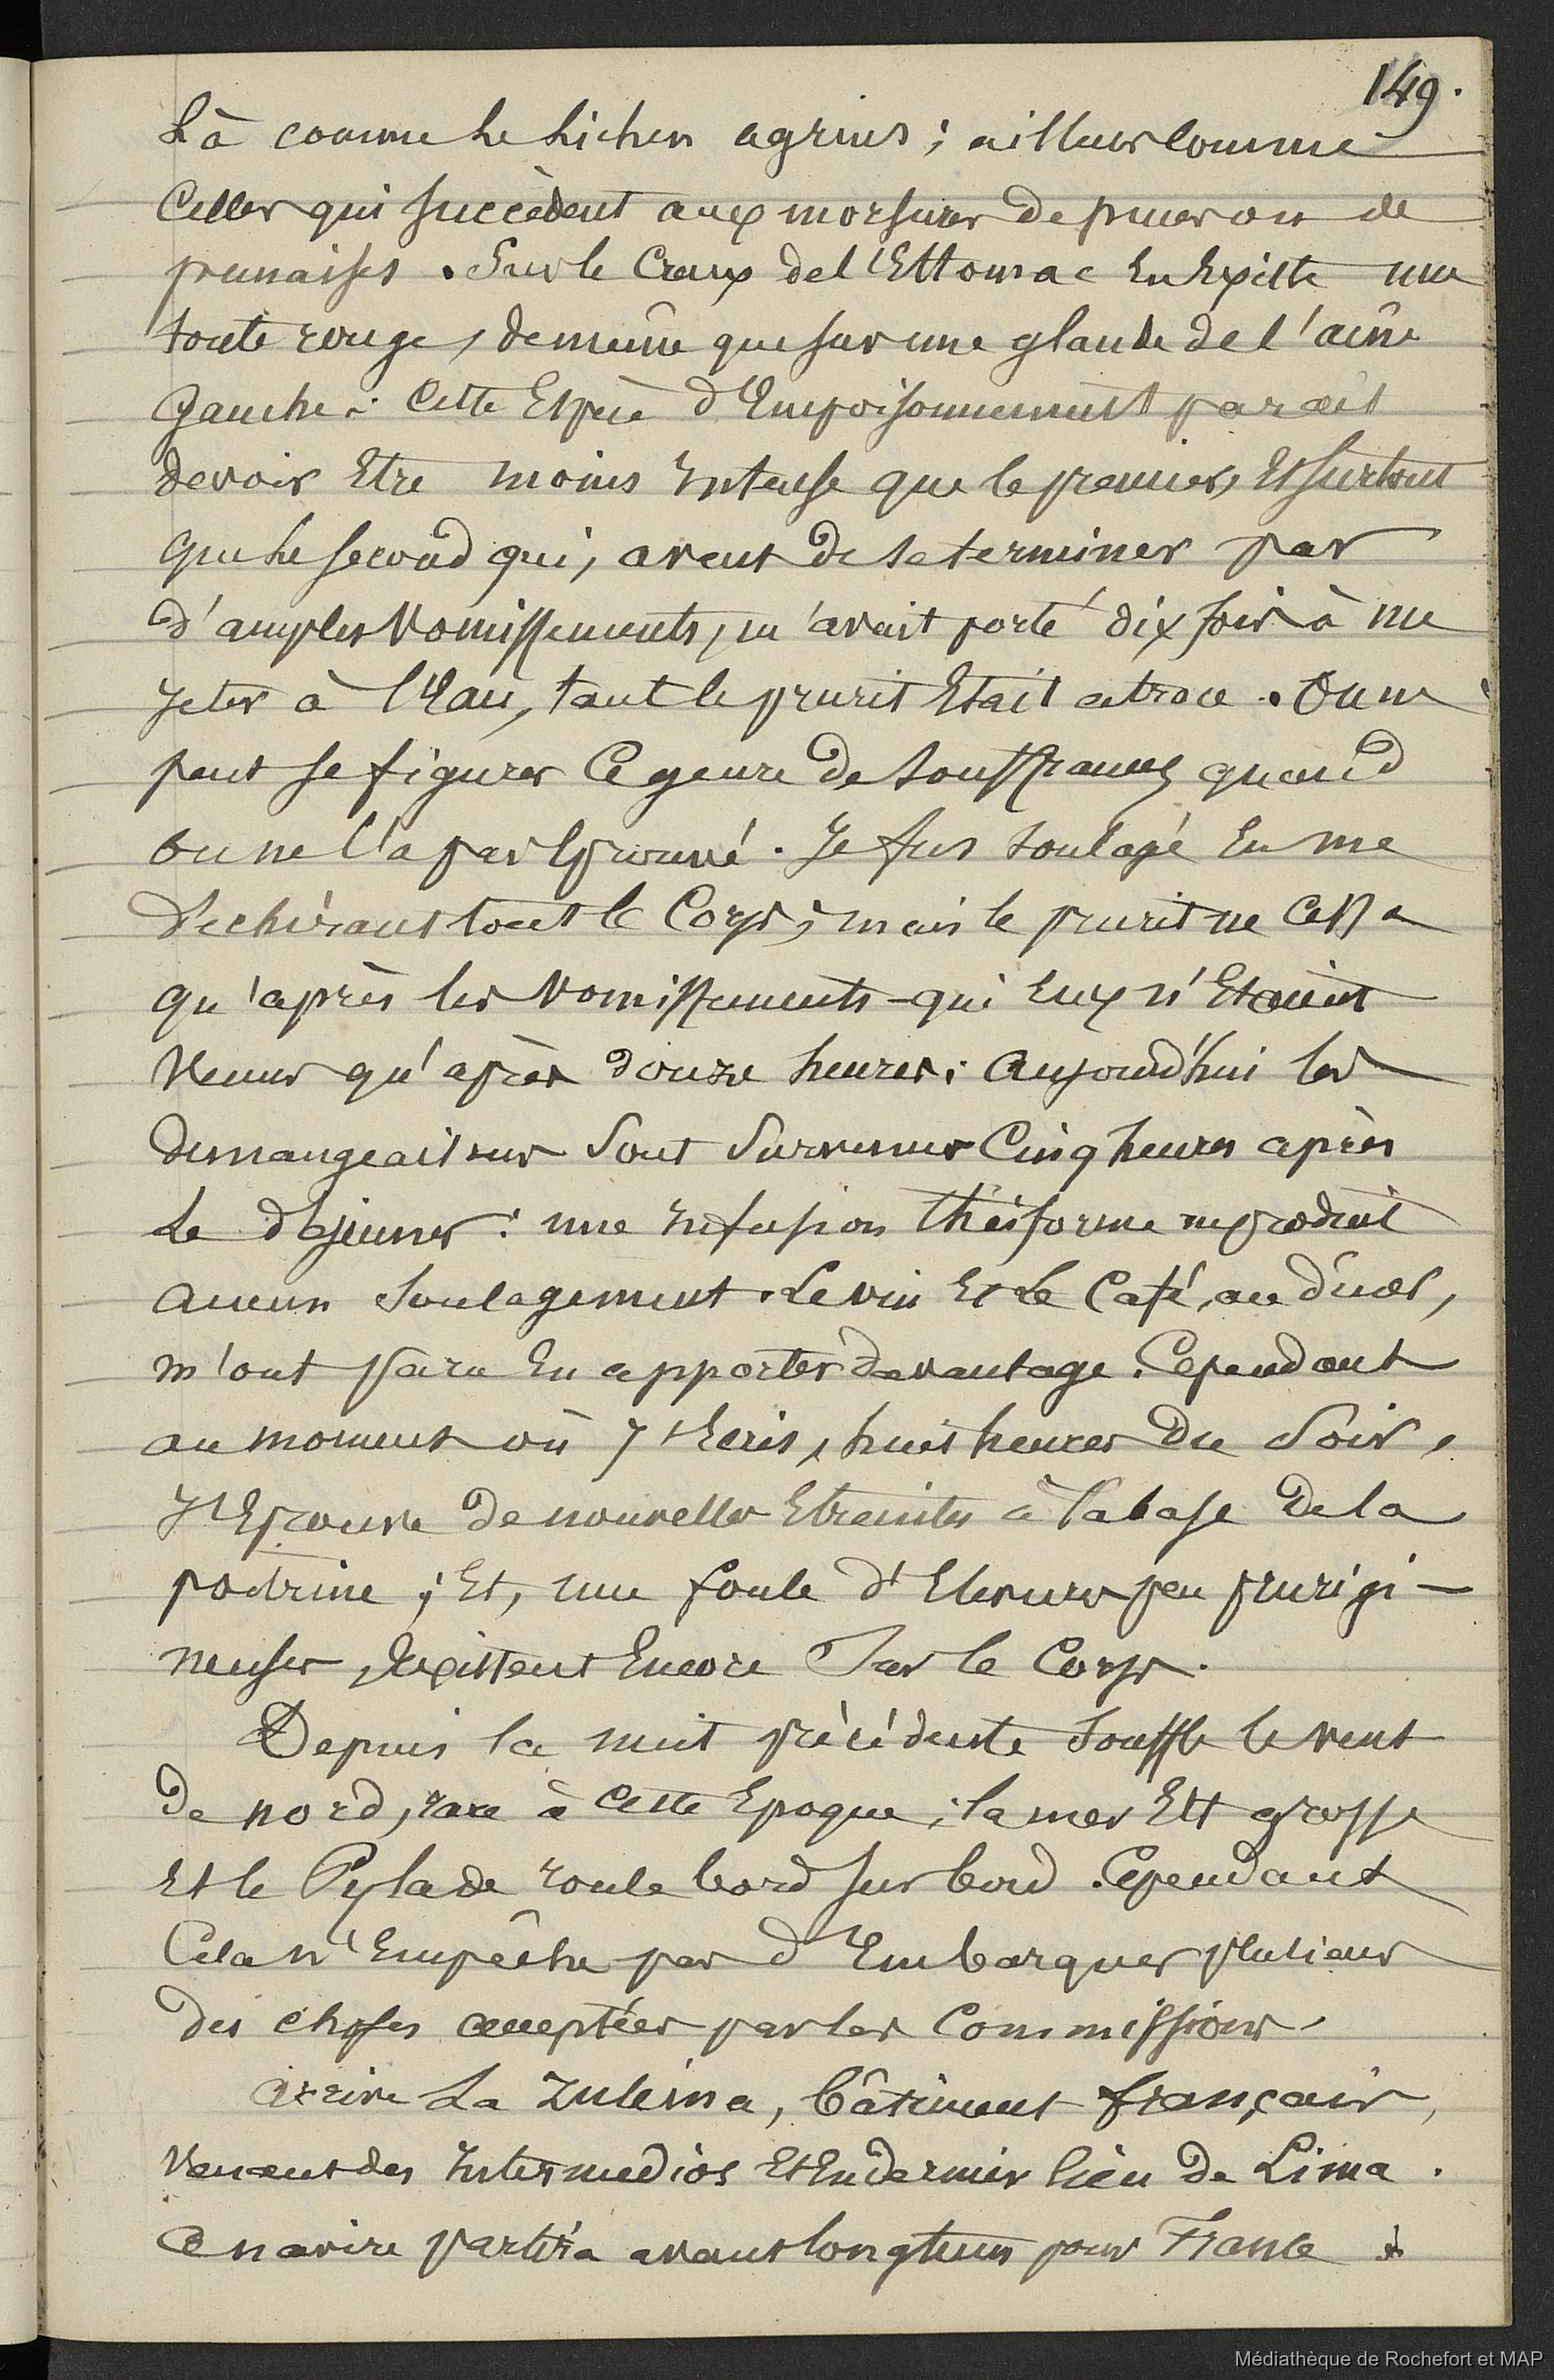 149.
Là comme le Lichen agrius ; ailleurs comme
Celles qui succèdent aux morsures de puces ou de
punaises. Sur le Creux de l'Estomac En Existe une
toute rouge, de même que sur une glande de l'aîne
Gauche. Cette Espèce d'Empoisonnement paraît
devoir Etre moins intense que le premier, Et surtout
que le second qui, avant de se terminer par
d'amples Vomissements, m'avait porté dix fois à me
jeter à l'Eau, tant le prurit Etait atroce. On ne
peut se figurer Ce genre de souffrances quand
on ne l'a pas Eprouvé. Je fus soulagé En me
déchirant tout le Corps ; mais le prurit ne Cessa
qu'après les Vomissements qui Eux n'Etaient
Venus qu'après douze heures ; Aujourd'hui les
démangeaisons Sont Survenues Cinq heures après
Le déjeuner : une infusion théiforme ne produit
Aucun Soulagement. Le vin Et Le Café, au dîner,
m'ont Paru En apporter davantage. Cependant
au moment où j'Ecris, huit heures du Soir,
J'Eprouve de nouvelles Etreintes à la base de la
poitrine ; Et, une foule d'Elevures peu prurigi-
neuses, Existent Encore Sur le Corps.
Depuis la nuit précédente souffle le vent
de nord, rare à Cette Epoque ; la mer Est grosse
Et le Pylade roule bord sur bord. Cependant
Cela n'Empêche pas d'Embarquer plusieurs
des choses acceptées par les Commissions.
Arrive La Zuleima, bâtiment français,
Venant des Intermedios Et En dernier lieu de Lima.
Ce navire Partira avant longtems pour France &
Médiathèque de Rochefort et MAP